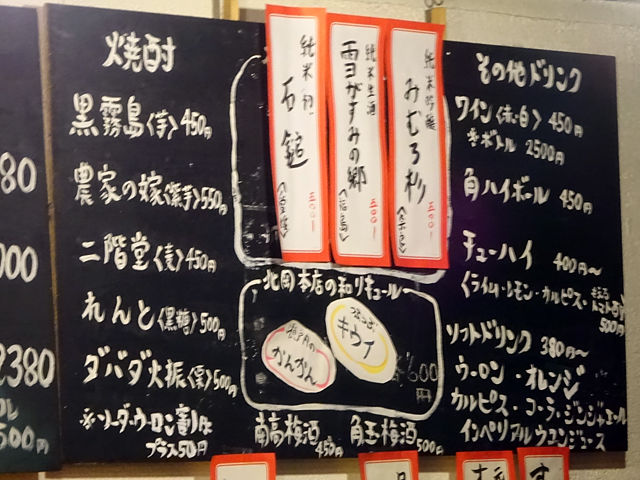 焼酎
黒霧島〈芋〉450円
農家の嫁〈紫芋〉550円
二階堂〈麦〉450円
れんと〈黒糖〉500円
ダバダ火振〈栗〉500円
※ソーダ・ウーロン割は
プラス50円
純米吟醸
みむろ杉
〈奈良〉
五〇〇
純米生酒
雪がすみの郷
〈福島〉
五〇〇
純米
石鎚
〈愛媛〉
五〇〇
北岡本店の和リキュール
つぶつぶ
キウイ
かんかん
600
円
南高梅酒
450円
角玉梅酒
500円
その他ドリンク
ワイン〈赤・白〉450円
ボトル 2500円
角ハイボール 450円
チューハイ 400円〜
〈ライム・レモン・カルピス・
500円
ソフトドリンク 380円〜
ウーロン・オレンジ
カルピス・コーラ・ジンジャエール
インペリアルウコンジュース
80
00
2380
500円